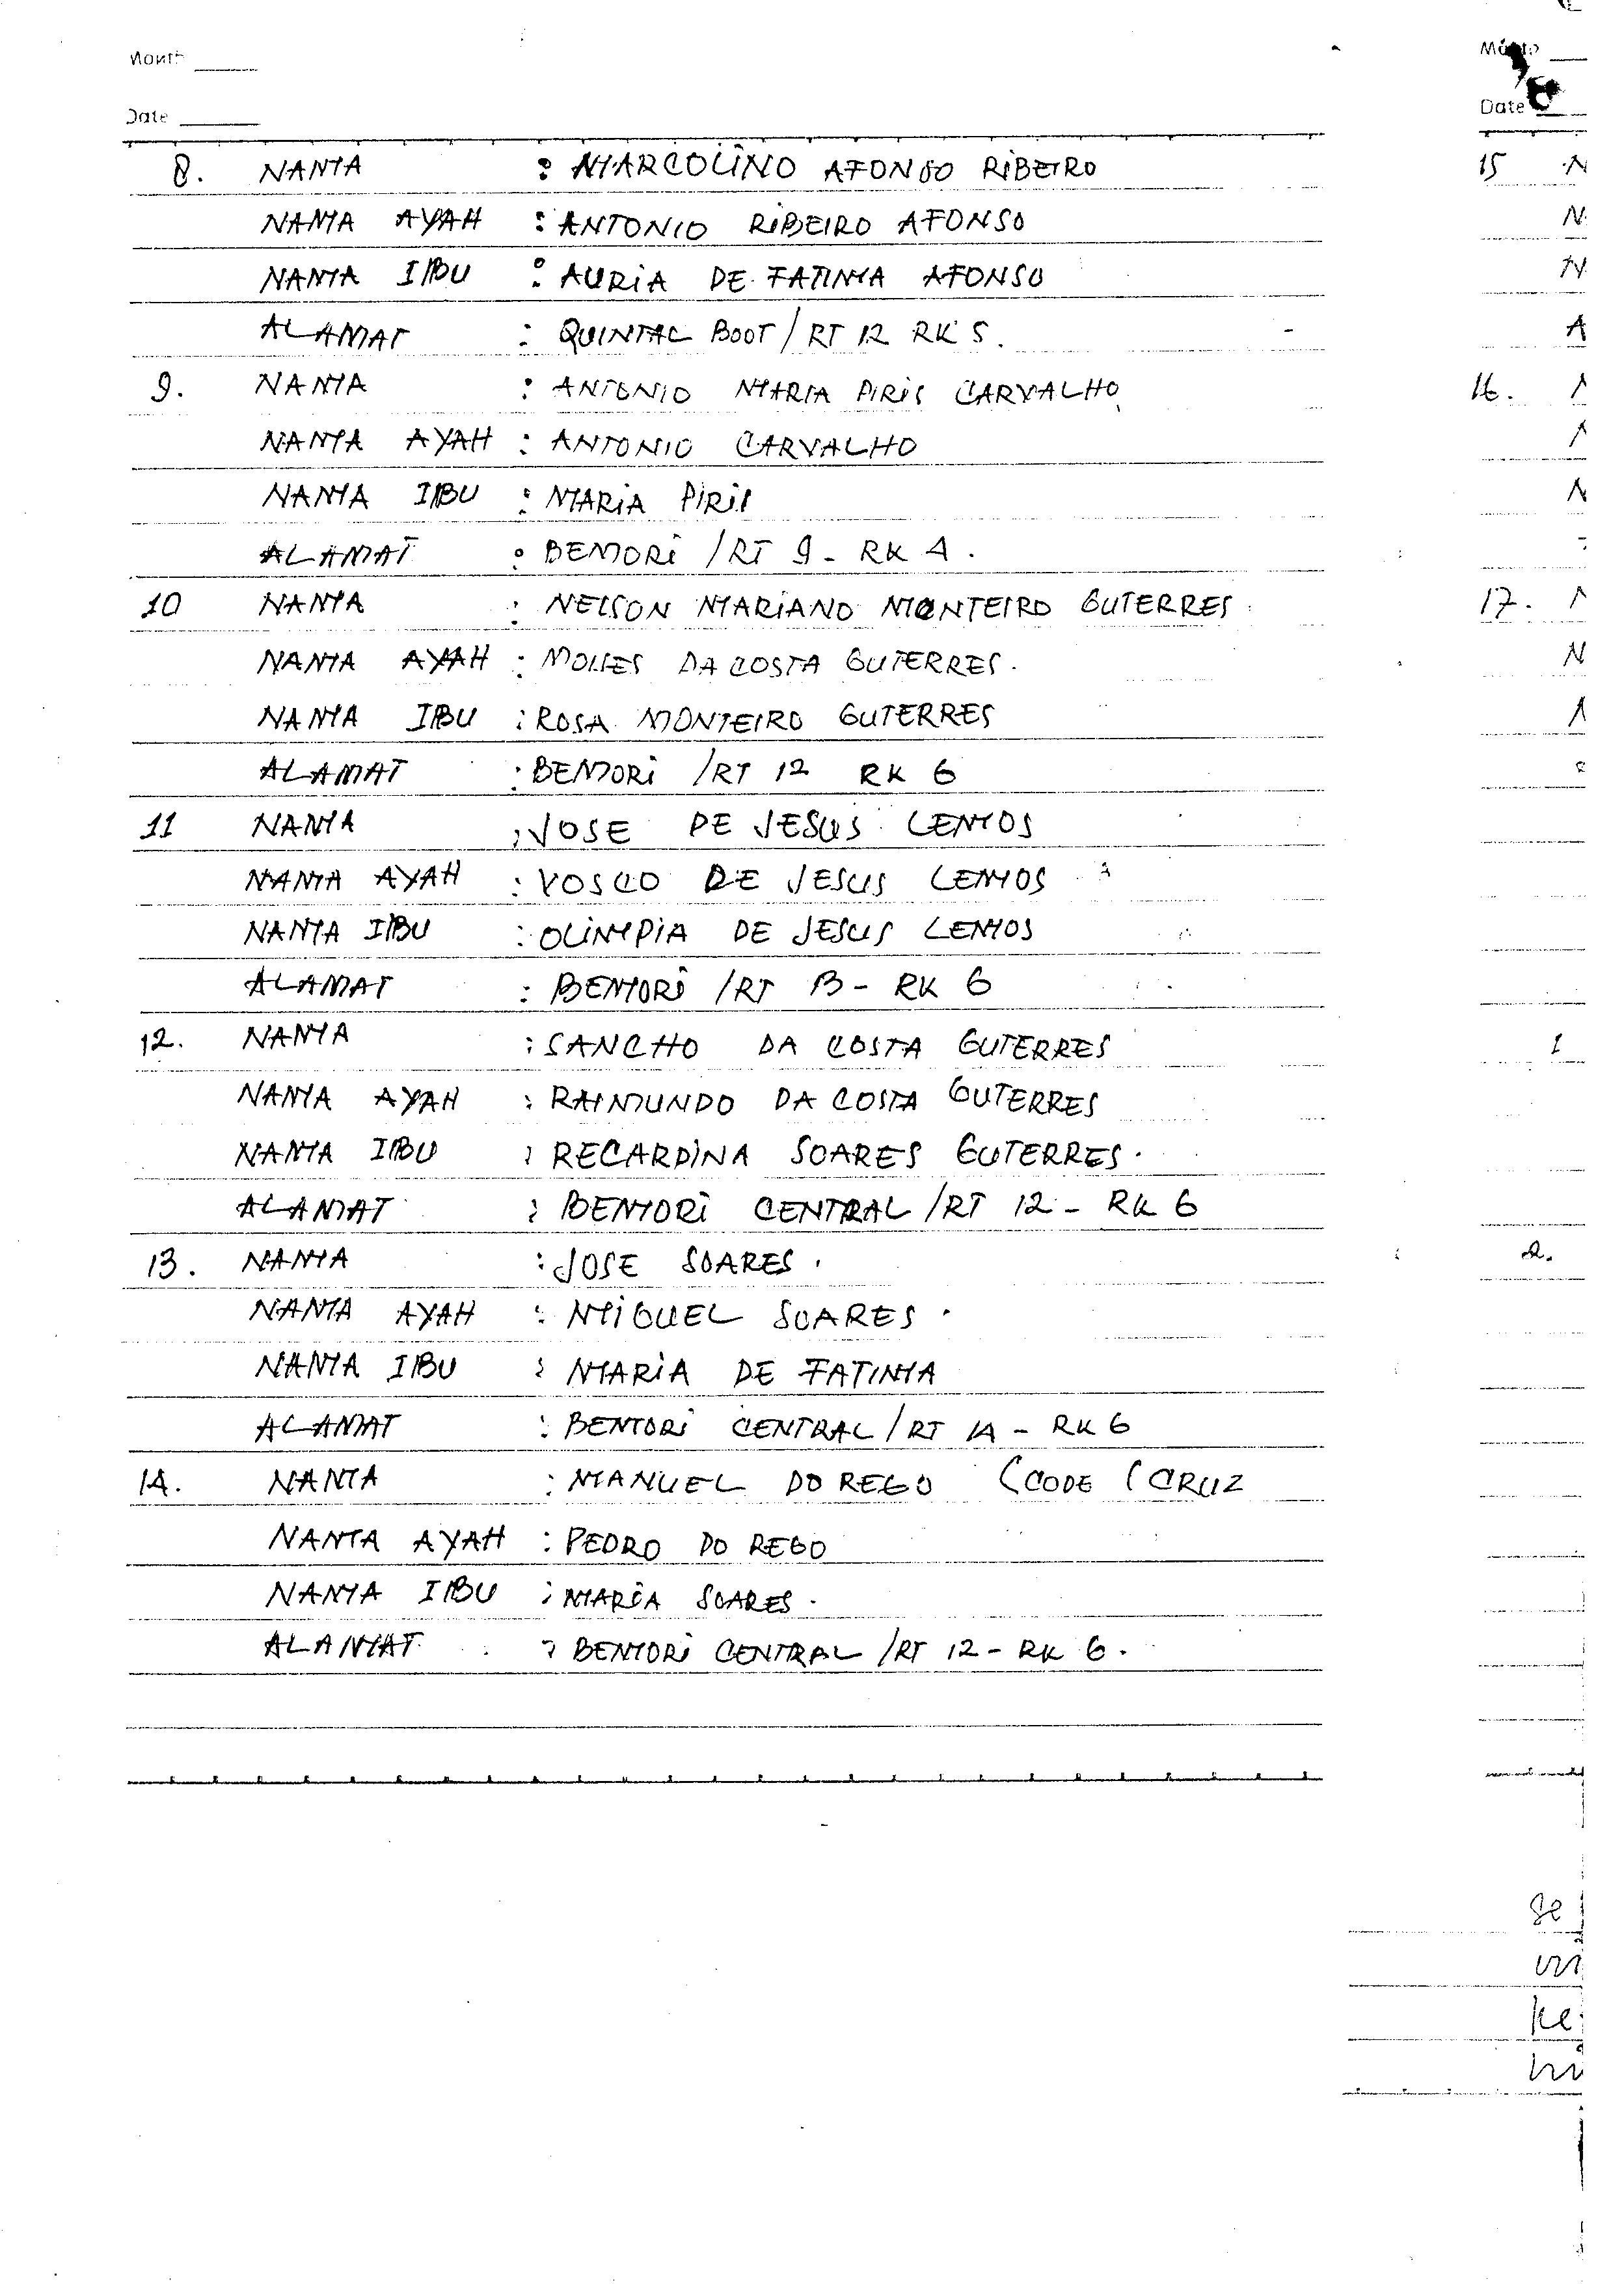 Month
Date
8. NAMA : MARCOLINO AFONSO RIBEIRO
NAMA AYAH : ANTONIO RIBEIRO AFONSO
NAMA IBU : AURIA DE FATIMA AFONSO
ALAMAT : QUINTAL BOOT / RT 12 RK 5.
9. NAMA : ANTONIO MARIA PIRIS CARVALHO
NAMA AYAH : ANTONIO CARVALHO
NAMA IBU : MARIA PIRIS
ALAMAT : BEMORI / RT 9 - RK 4.
10 NAMA : NELSON MARIANO MONTEIRO GUTERRES
NAMA AYAH : MOISES DA COSTA GUTERRES.
NAMA IBU : ROSA MONTEIRO GUTERRES
ALAMAT : BEMORI / RT 12 RK 6
11 NAMA : JOSE DE JESUS LEMOS
NAMA AYAH : VOSCO DE JESUS LEMOS
NAMA IBU : OLIMPIA DE JESUS LEMOS
ALAMAT : BEMORI / RT 13 - RK 6
12. NAMA : SANCHO DA COSTA GUTERRES
NAMA AYAH : RAIMUNDO DA COSTA GUTERRES
NAMA IBU : RECARDINA SOARES GUTERRES.
ALAMAT : BEMORI CENTRAL / RT 12 - RK 6
13. NAMA : JOSE SOARES.
NAMA AYAH : MIGUEL SOARES.
NAMA IBU : MARIA DE FATIMA
ALAMAT : BEMORI CENTRAL / RT 14 - RK 6
14. NAMA : MANUEL DO REGO (CODE ( CRUZ
NAMA AYAH : PEDRO DO REGO
NAMA IBU : MARIA SOARES.
ALAMAT : BEMORI CENTRAL / RT 12 - RK 6.
Date
15 N
N
N
A
16.
N
17.
N
2.
ke